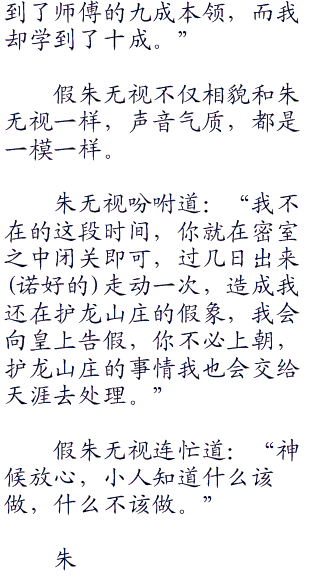 到了师傅的九成本领，而我
却学到了十成。”
假朱无视不仅相貌和朱
无视一样，声音气质，都是
一模一样。
朱无视吩咐道：“我不
在的这段时间，你就在密室
之中闭关即可，过几日出来
(诺好的)走动一次，造成我
还在护龙山庄的假象，我会
向皇上告假，你不必上朝，
护龙山庄的事情我也会交给
天涯去处理。”
假朱无视连忙道：“神
候放心，小人知道什么该
做，什么不该做。”
朱